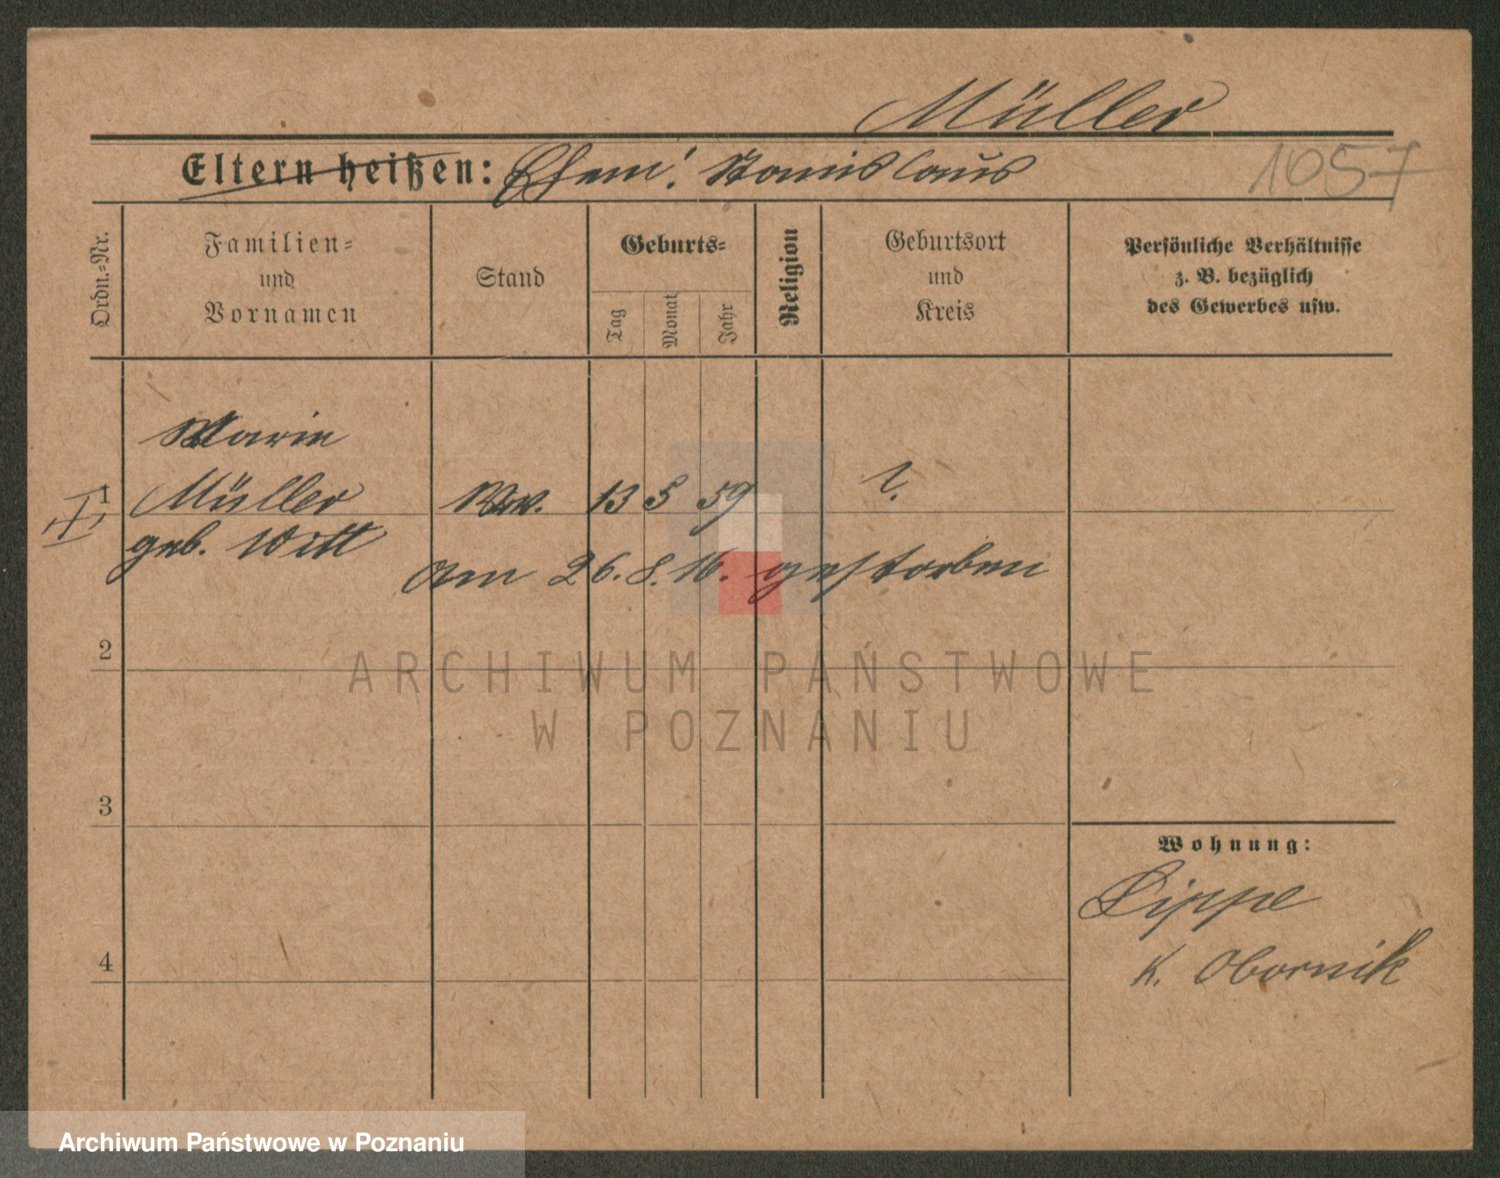 Müller
Eltern heißen: Ehem: Stanislaus 1057
Ordn.-Nr.
Familien-
und
Vornamen
Stand
Geburts-
Tag
Monat
Jahr
Religion
Geburtsort
und
Kreis
Persönliche Verhältnisse
z. B. bezüglich
des Gewerbes usw.
Marie
1 Müller Ww. 13 5 59 ?
geb. Witt
am 26.8.16. gestorben
2
ARCHIWUM PAŃSTWOWE
W POZNANIU
3
Wohnung:
Lippe
K. Obornik
4
Archiwum Państwowe w Poznaniu